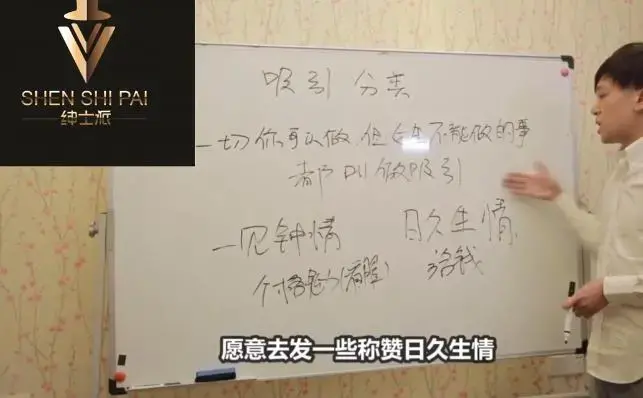 SHEN SHI PAI
绅士派
吸引 分类
一切你可以做 但女生不能做的事
都叫做吸引
一见钟情 日久生情
个
愿意去发一些称赞日久生情